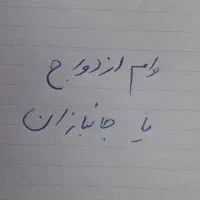 وام ازدواج
یا جانبازان